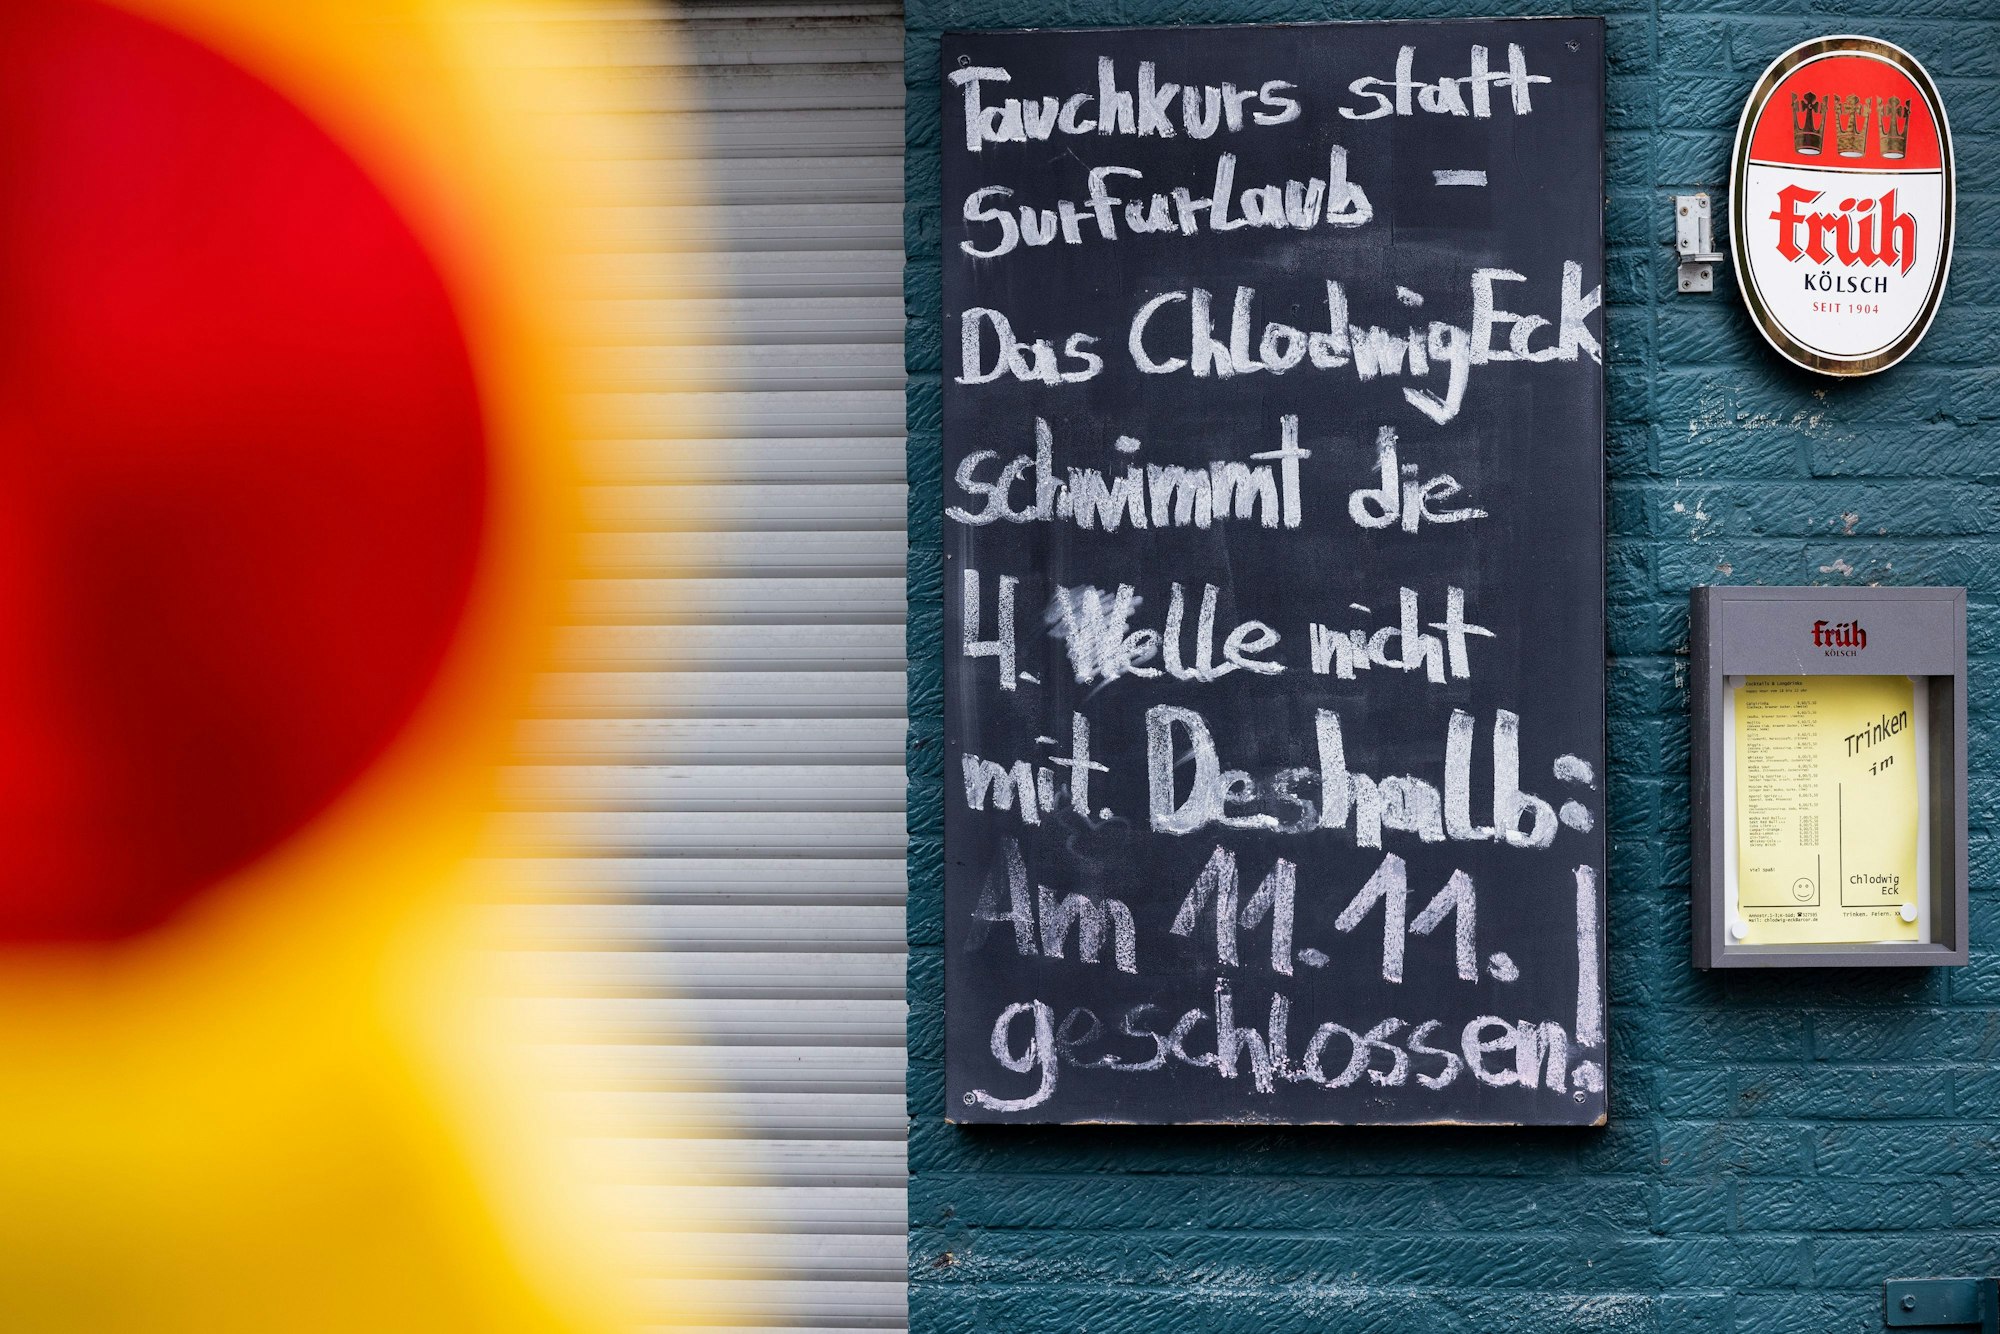 Tauchkurs statt
Surfurlaub -
Das ChlodwigEck
schwimmt die
4. Welle nicht
mit. Deshalb:
Am 11.11.!
geschlossen!
Früh
KÖLSCH
SEIT 1904
Früh
KÖLSCH
Cocktails & Longdrinks
Trinken
im
Viel Spaß!
Chlodwig
Eck
Trinken. Feiern.